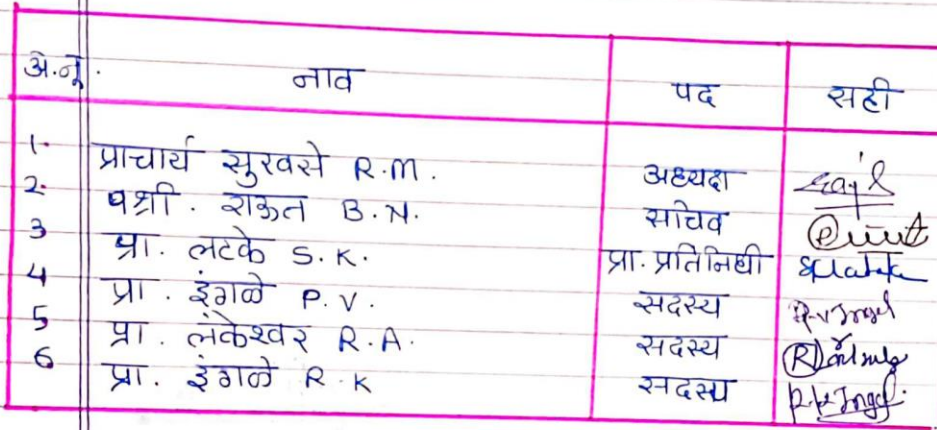 अ.नू. नाव पद सही
1. प्राचार्य सुरवसे R.M. अध्यक्ष
2. श्री. राऊत B.N. सचिव
3 प्रा. लटके S.K. प्रा. प्रतिनिधी
4 प्रा. इंगळे P.V. सदस्य P.V Ingel
5 प्रा. लंकेश्वर R.A. सदस्य
6 प्रा. इंगळे R.K सदस्य